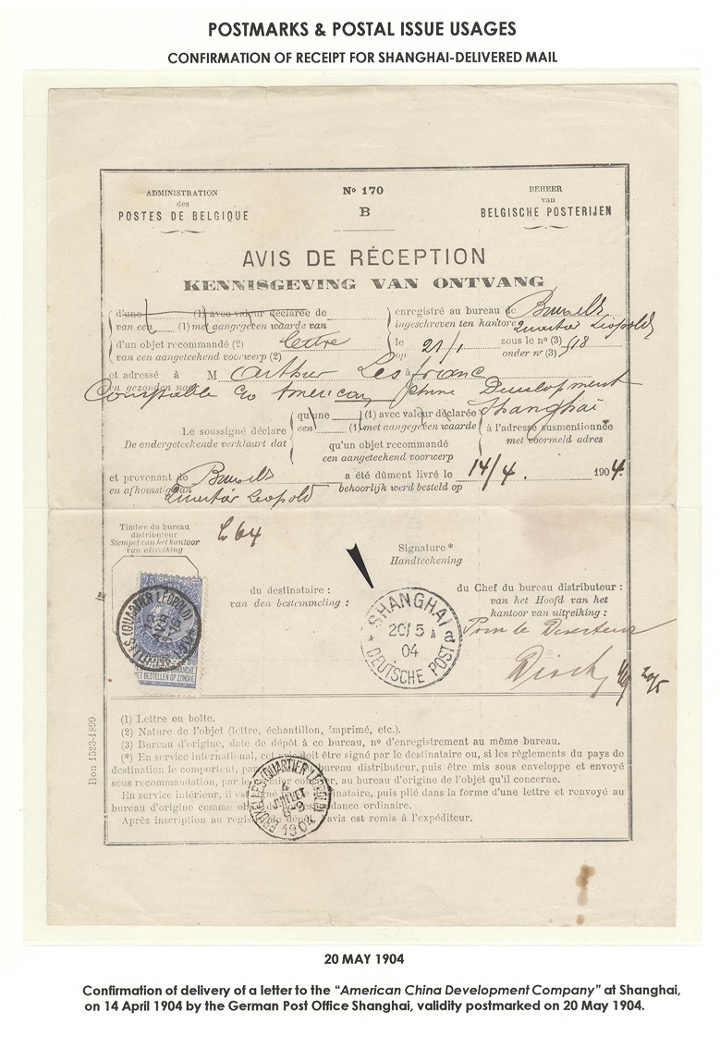 POSTMARKS & POSTAL ISSUE USAGES
CONFIRMATION OF RECEIPT FOR SHANGHAI-DELIVERED MAIL
ADMINISTRATION
des
POSTES DE BELGIQUE
No 170
B
BEHEER
van
BELGISCHE POSTERIJEN
AVIS DE RÉCEPTION
KENNISGEVING VAN ONTVANG
d'une (1) avec valeur déclarée de
van een (1) met aangegeven waarde van
d'un objet recommandé (2) lettre
van een aangeteekend voorwerp (2)
enregistré au bureau de Bruxelles
ingeschreven ten kantore Quartier Léopold
le 21/1 sous le no (3) 918
op onder nr (3)
et adressé à M Arthur
en gezonden naar
American China Development
Shanghai
Le soussigné déclare
De ondergeteekende verklaart dat
qu'une (1) avec valeur déclarée
een (1) met aangegeven waarde
qu'un objet recommandé
een aangeteekend voorwerp
à l'adresse susmentionnée
met voormeld adres
et provenant de Bruxelles a été dûment livré le 14/4. 1904.
en afkomstig van Quartier Léopold behoorlijk werd besteld op
Timbre du bureau
distributeur
Stempel van het kantoor
van uitreiking
L 64
Signature*
Handteekening
du destinataire :
van den bestemmeling :
du Chef du bureau distributeur :
van het Hoofd van het
kantoor van uitreiking :
Pour le Directeur
25
BRUXELLES (QUARTIER LÉOPOLD)
NE PAS LIVRER LE DIMANCHE
NIET BESTELLEN OP ZONDAG
SHANGHAI a
20/5
04
DEUTSCHE POST
20/5
Bon 1523-1899
(1) Lettre ou boîte.
(2) Nature de l'objet (lettre, échantillon, imprimé, etc.).
(3) Bureau d'origine, date de dépôt à ce bureau, no d'enregistrement au même bureau.
(*) En service international, cet avis doit être signé par le destinataire ou, si les règlements du pays de
destination le comportent, par bureau distributeur, puis être mis sous enveloppe et envoyé
sous recommandation, par le premier courrier, au bureau d'origine de l'objet qu'il concerne.
En service intérieur, il est destinataire, puis plié dans la forme d'une lettre et renvoyé au
bureau d'origine comme correspondance ordinaire.
Après inscription au registre de dépôt avis est remis à l'expéditeur.
BRUXELLES (QUARTIER LÉOPOLD)
4
JUILLET
1904
20 MAY 1904
Confirmation of delivery of a letter to the “American China Development Company” at Shanghai,
on 14 April 1904 by the German Post Office Shanghai, validity postmarked on 20 May 1904.